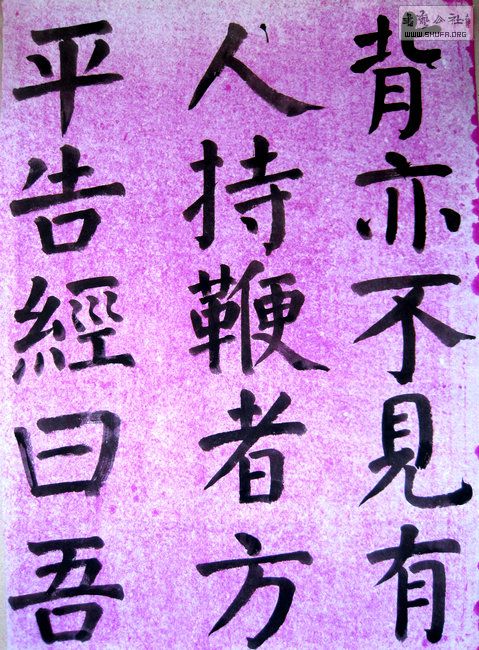 背亦不見有
人持鞭者方
平告經曰吾
WWW.SHUFA.ORG